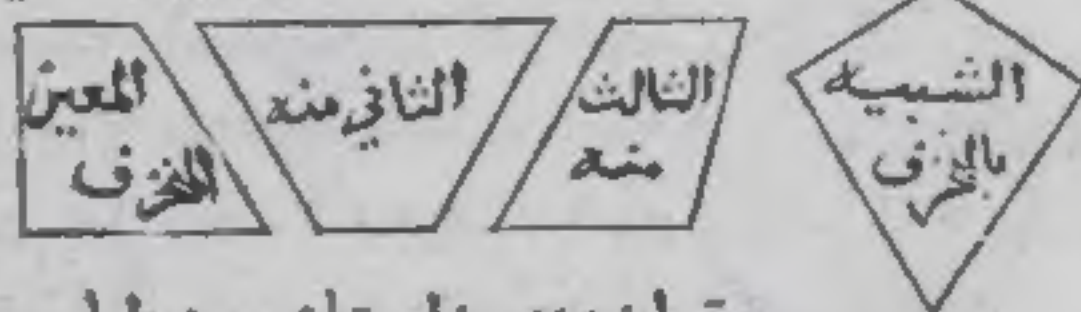 الشبيه
بالمخرف
الثالث
منه
الثاني منه
المعين
المخرف